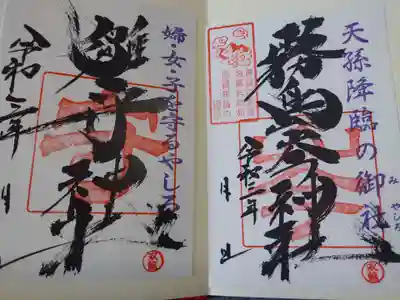 天孫降臨の御社
みやしろ
霧島岑神社
令和二年 月 日
婦・女・子を守るやしろ
雛守神社
令和二年 月